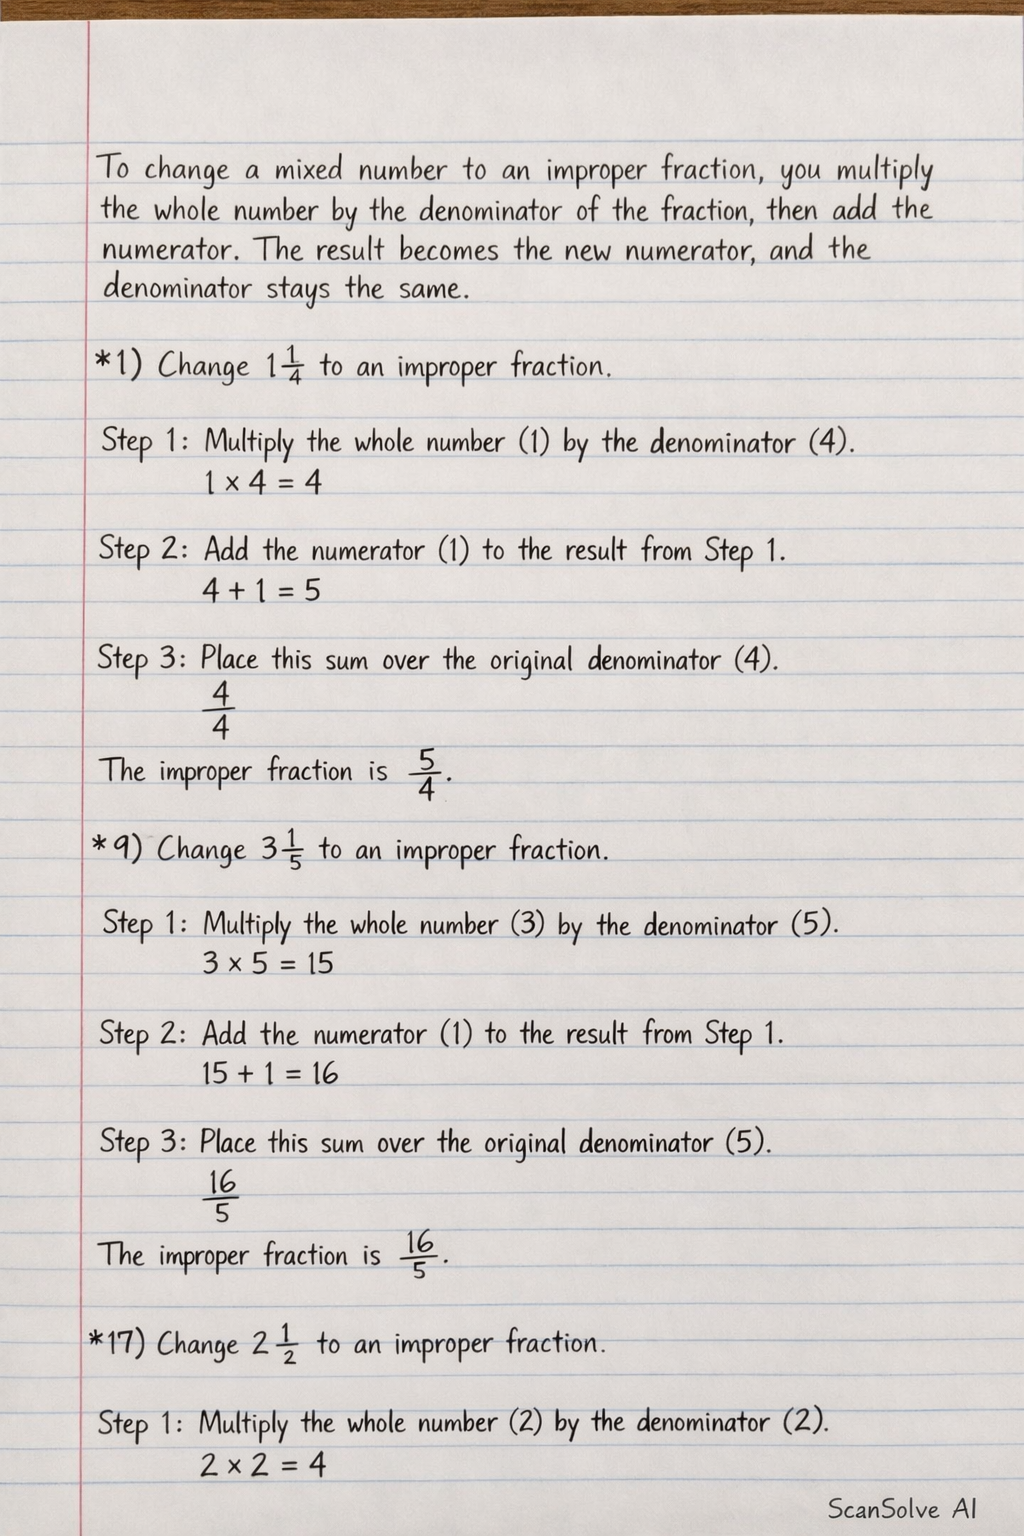 To change a mixed number to an improper fraction, you multiply
the whole number by the denominator of the fraction, then add the
numerator. The result becomes the new numerator, and the
denominator stays the same.
*1) Change 1 1/4 to an improper fraction.
Step 1: Multiply the whole number (1) by the denominator (4).
1 × 4 = 4
Step 2: Add the numerator (1) to the result from Step 1.
4 + 1 = 5
Step 3: Place this sum over the original denominator (4).
4/4
The improper fraction is 5/4.
*9) Change 3 1/5 to an improper fraction.
Step 1: Multiply the whole number (3) by the denominator (5).
3 × 5 = 15
Step 2: Add the numerator (1) to the result from Step 1.
15 + 1 = 16
Step 3: Place this sum over the original denominator (5).
16/5
The improper fraction is 16/5.
*17) Change 2 1/2 to an improper fraction.
Step 1: Multiply the whole number (2) by the denominator (2).
2 × 2 = 4
ScanSolve AI